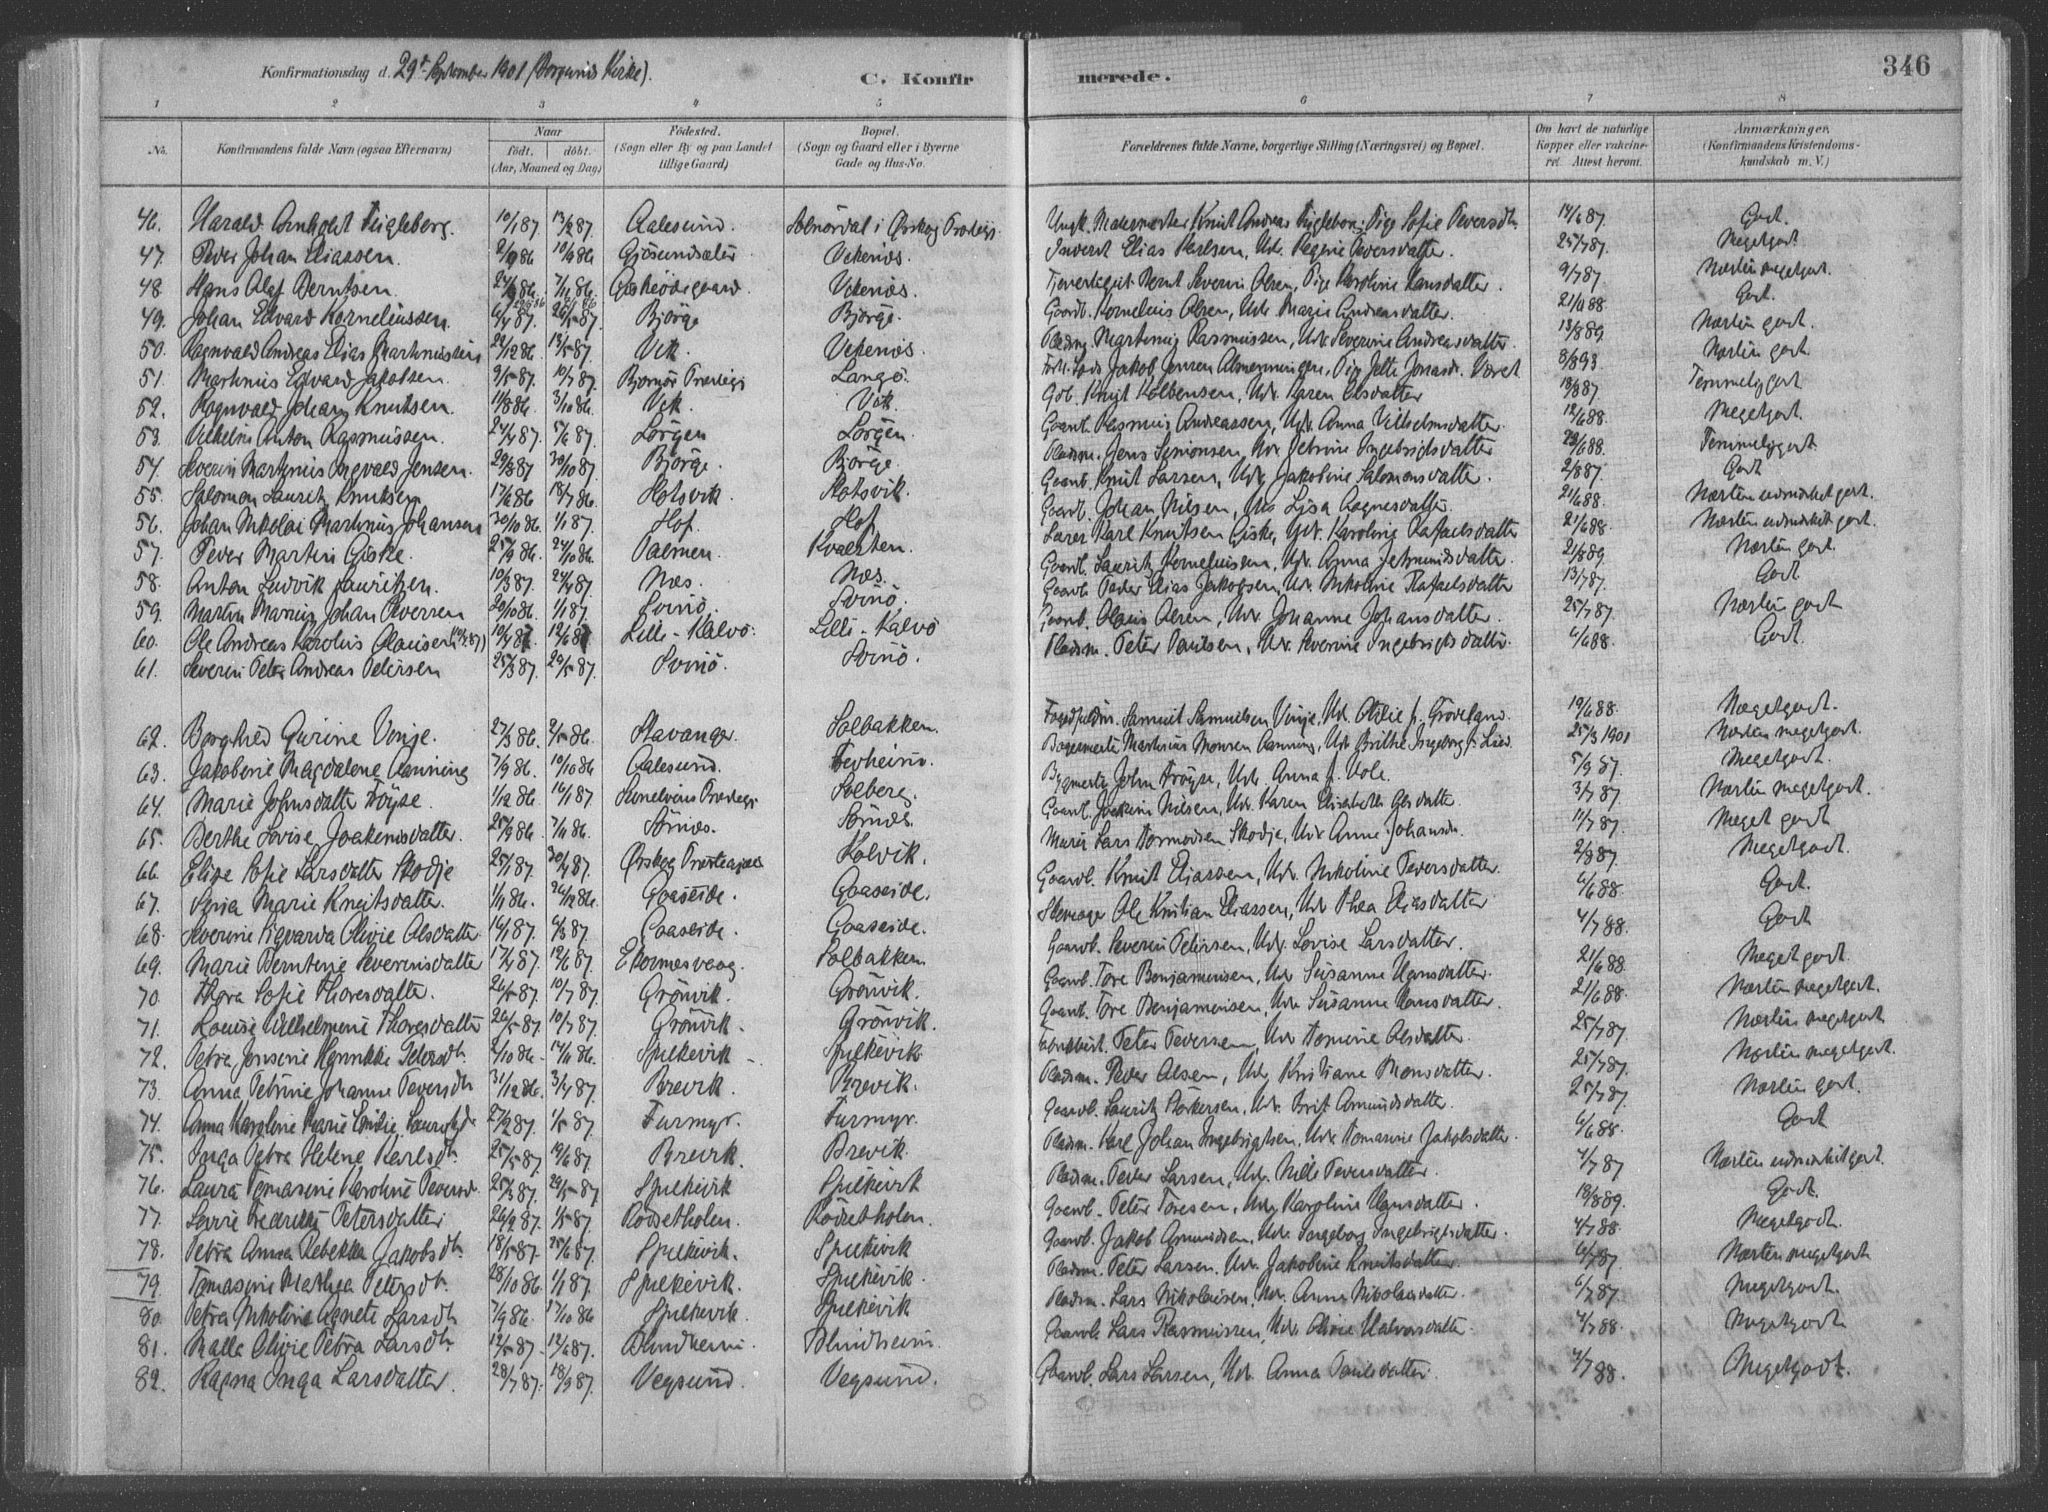 Konfirmationsdag d. 29de September 1901 (Borgunds Kirke).
C. Konfirmerede.
346
1 2 3 4 5 6 7 8
No. Konfirmandens fulde Navn (ogsaa Efternavn) Naar født. døbt. (Aar, Maaned og Dag) Fødested. (Sogn eller By og paa Landet tillige Gaard) Bopæl. (Sogn og Gaard eller i Byerne Gade og Hus-No. Forældrenes fulde Navne, borgerlige Stilling (Næringsvei) og Bopæl. Om havt de naturlige Kopper eller vaccineret. Attest herom. Anmærkninger. (Konfirmandens Kristendomskundskab m. V.)
46. Harald Arnholdt 10/1 87. 13/2 87. Aalesund. i Ørskog Knut Andreas Pige Sofie Peversdtr 14/6 87. Godt.
47. Peder Johan Eliassen. 2/9 86 10/9 86 Vikenæs. Elias Karlsen, Udv. 25/7 87. Megetgodt
48. Hans Olaf Berntsen. 24/9 86. 7/11 86. Vikenæs. Bernt Severin Olsen, Pige Karoline Hansdatter. 9/7 87 Næsten megetgodt.
49. Johan Edvard Korneliussen. Bjørge Bjørge. Gaardb. Kornelius Olsen, Udv. Marie Andreasdatter. 21/6 88 Godt.
50. Ragnvald Andreas Elias Martinussen 22/12 86. 13/5 87. Vik. Vikenæs. Pladsm. Martinus Rasmussen, Udv. Severine Andreasdatter. 13/8 89. Næsten godt.
51. Martinus Edvard Jakobsen. 9/5 87. 10/7 87. Bjørnør Præstegj Langø. Jakob Jensen Almenningen, Pige Jette Jonasdr. Været 8/8 93 Næsten godt.
52. Ragnvald Johan Knutsen. 11/8 86. 3/10 86. Vik. Vik. Gdb. Knut Kolbensen, Udv. Karen Olsdatter 18/8 87. Temmeliggodt
53. Vilhelm Anton Rasmussen. 24/4 87. 5/6 87. Lørgen Lørgen. Gaardb. Rasmus Andreassen, Udv. Anna Vilhelmsdatter. 12/6 88. Megetgodt.
54. Severin Martinus Ingvald Jensen. 29/8 87. 30/10 87. Bjørge. Bjørge. Pladsm. Jens Simonsen, Udv. Jetrine Ingebrigtsdatter. 28/6 88. Temmeliggodt.
55. Salomon Lauritz Knutsen 17/6 86. 18/7 86. Flotsvik. Flotsvik. Gaardb. Knut Larsen, Udv. Jakobine Salomonsdatter. 2/8 87. Godt
56. Johan Nikolai Martinus Johansen 30/10 86. 1/1 87. Hof. Hof. Gaardb. Johan Nilsen, Udv. Lisa Aagnesdatter. 21/6 88. Næsten udmærket godt.
57. Peder Martin Giske. 25/9 86. 24/10 86. Palmen. Kværten. Lærer Karl Knutsen Giske, Udv. Karoline Rafaelsdatter 21/6 88. Næsten udmærket godt.
58. Anton Ludvik Lauritzen. 10/3 87. 24/4 87. Næs. Næs. Gaardb. Lauritz Korneliussen, Udv. Anna Jetmundsdatter. 21/8 89. Næsten godt.
59. Martin Marius Johan Peversen 20/10 86. 1/1 87. Svinø. Svinø. Gaardb. Peder Elias Jakobsen, Udv. Nikoline Rafaelsdatter 13/7 87. Godt.
60. Ole Andreas Karolus Olausen Lille-Kalvø. Lille-Kalvø Gaardb. Olaus Olsen, Udv. Johanne Johansdatter. 25/7 87. Næsten godt
61. Severin Peter Andreas Petersen 25/3 87. 29/5 87. Svinø. Svinø. Pladsm. Peter Paulsen, Udv. Severine Ingebrigtsdatter. 6/6 88. Godt.
62. Borghild Gurine Vinje. 27/3 86. 2/5 86. Stavanger. Solbakken. Samuel Samuelsen Vinje, Ud. Otilie f. 19/6 88. Megetgodt.
63. Jakobine Magdalene Aanning 7/9 86. 10/10 86. Aalesund. Bagermester Martinus Monsen Aanning, Udv. Brithe Ingeborg f. 25/3 1901 Næsten megetgodt.
64. Marie Johnsdatter Frøyse. 1/12 86. 16/1 87. Sunelvens Præstegj Solberg. Bygmester John Frøyse, Udv. Anna f. Hole. 5/9 87. Megetgodt.
65. Berthe Lovise Joakimsdatter. 25/9 86. 7/11 86. Sørnæs. Sørnæs. Gaardb. Joakim Nilsen, Udv. Karen Elisabeth Olsdatter. 3/7 87. Næsten megetgodt.
66. Elise Sofie Larsdatter Skodje 25/1 87. 30/4 87. Ørskog Præstegjæld Holvik. Murer Lars Tormodsen Skodje, Udv. Anne Johansdr. 11/7 87. Meget godt
67. Seria Marie Knutsdatter. 1/11 86. 26/12 86. Gaaseide. Gaaseide. Gaardb. Knut Eliassen, Udv. Nikoline Peversdatter. 2/8 87. Megetgodt.
68. Severine Sigvarda Olivie Olsdatter 16/1 87. 6/3 87. Gaaseide. Gaaseide. Ole Kristian Eliassen, Udv. Thea Eliasdatter 6/6 88. Godt.
69. Marie Berntine Severinsdatter 17/4 87. 12/6 87. Solbakken Gaardb. Severin Petersen, Udv. Lovise Larsdatter. 4/7 88. Godt
70. Thora Sofie Thoresdatter. 26/5 87. 10/7 87. Grønvik. Grønvik. Gaardb. Tore Benjaminsen, Udv. Susanne Hansdatter. 21/6 88. Megetgodt.
71. Louise Vilhelmine Thoresdatter 26/5 87. 10/7 87. Grønvik. Grønvik. Gaardb. Tore Benjaminsen, Udv. Susanne Hansdatter. 21/6 88. Næsten megetgodt.
72. Petra Jensine Henrikke Petersdtr. 2/10 86. 14/11 86. Spilkevik Spilkevik. Peter Peversen, Udv. Tomine Olsdatter. 25/7 87. Næsten megetgodt
73. Anna Petrine Johanne Peversdtr 31/12 86. 3/4 87. Brevik. Brevik. Pladsm. Peder Olsen, Udv. Kristiane Monsdatter. 25/7 87. Næsten megetgodt.
74. Anna Karoline Marie Emilie Lauritzdr. 27/2 87. 1/5 87. Furmyr. Furmyr. Gaardb. Lauritz Petersen, Udv. Brit Amundsdatter. 25/7 87. Næsten godt.
75. Inga Petra Helene Karlsdtr. 25/5 87. 19/6 87. Brevik. Brevik. Pladsm. Karl Johan Ingebrigtsen, Udv. Tomasine Jakobsdatter. 6/6 88. Godt
76. Laura Tomasine Karoline Peversd. 25/3 87. 29/5 87. Spilkevik Spilkevik Pladsm. Peder Larsen, Udv. Nille Peversdatter. 4/7 87 Næsten udmærketgodt.
77. Lovise Fredrikke Petersdatter 26/2 87. 1/5 87. Rødsetholen. Rødsetholen. Gaardb. Peter Toresen, Udv. Karoline Hansdatter. 18/8 89. Godt.
78. Petra Anna Rebekka Jakobsdtr. 18/5 87. 25/6 87. Spilkevik. Spilkevik Gaardb. Jakob Amundsen, Udv. Ingeborg Ingebrigtsdatter. 4/7 88 Megetgodt.
79. Tomasine Mathea Petersdtr. 28/10 86. 1/1 87. Spilkevik. Spilkevik. Pladsm. Peter Larsen, Udv. Jakobine Knutsdatter 6/7 87 Næsten megetgodt
80. Petra Nikoline Agnete Larsdtr. 7/9 86. 17/10 86 Spilkevik. Spilkevik Pladsm. Lars Nikolaisen, Udv. Anna Nikolaisdatter. 6/7 87. Megetgodt.
81. Malla Olivie Petra Larsdtr. 12/5 87. 12/6 87. Blindheim. Blindheim. Gaardb. Lars Rasmussen, Udv. Olivie Halvorsdatter. 4/7 88. Megetgodt
82. Ragna Inga Larsdatter. 28/7 87. 18/9 87. Vegsund. Vegsund. Gaardb. Lars Larsen, Udv. Anna Paulsdatter. 4/7 88. Megetgodt.